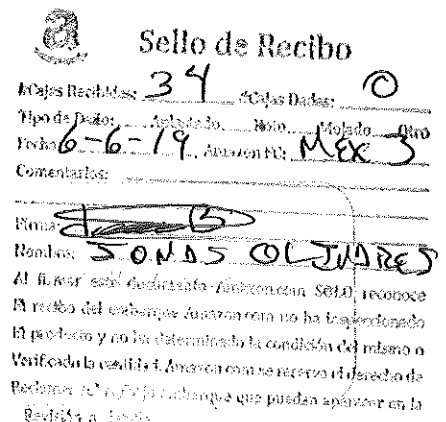 a
Sello de Recibo
#Cajas Recibidas: 34 #Cajas Dadas: 0
Tipo de Daño: Aplastado Roto Mojado Otro
Fecha: 6-6-19 Amazon FC: MEX 3
Comentarios:
Firma:
Nombre: JONAS OLIVARES
Al firmar este documento Amazon.com SOLO reconoce
El recibo del embarque Amazon com no ha inspeccionado
El producto y no ha determinado la condición del mismo o
Verificado la cantidad. Amazon com se reserva el derecho de
Reclamar embarque que puedan aparecer en la
Revisión a